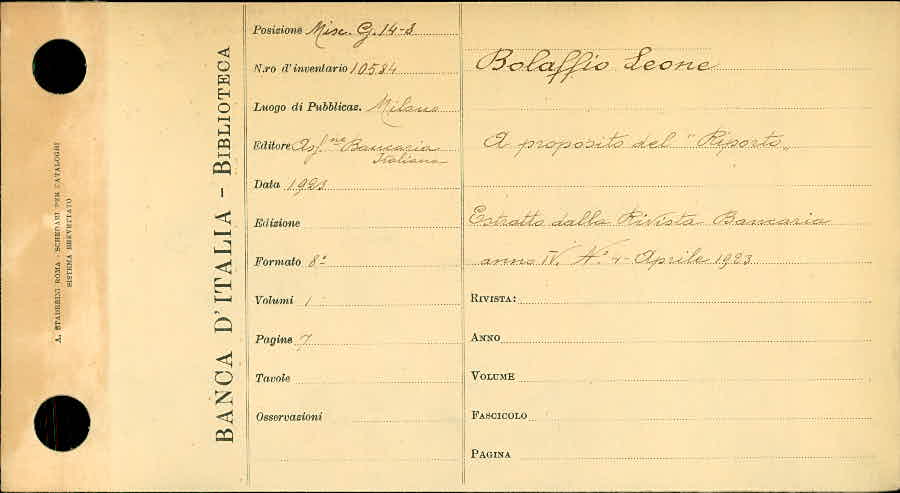 A. STADERINI ROMA - SCHEDARI PER CATALOGHI
SISTEMA BREVETTATO
BANCA D'ITALIA - BIBLIOTECA
Posizione Misc. G. 14-3
N.ro d'inventario 10584
Luogo di Pubblicaz. Milano
Editore Ass.ne Bancaria
Italiana
Data 1923
Edizione
Formato 8°
Volumi 1
Pagine 7
Tavole
Osservazioni
Bolaffio Leone
A proposito del "Riporto"
Estratto dalla Rivista Bancaria
anno IV. N.° 4 - Aprile 1923
RIVISTA:
ANNO
VOLUME
FASCICOLO
PAGINA